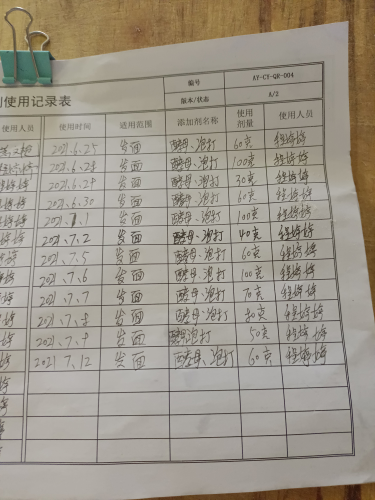 编号 AY-CY-QR-004
剂使用记录表
版本/状态 A/2
使用人员 使用时间 适用范围 添加剂名称 使用剂量 使用人员
2021.6.25 发面 酵母、泡打 60克 程婷婷
2021.6.28 发面 酵母、泡打 100克 程婷婷
2021.6.29 发面 酵母、泡打 30克 程婷婷
2021.6.30 发面 酵母、泡打 60克 程婷婷
2021.7.1 发面 酵母、泡打 100克 程婷婷
2021.7.2 发面 酵母、泡打 40克 程婷婷
2021.7.5 发面 酵母、泡打 60克 程婷婷
2021.7.6 发面 酵母、泡打 100克 程婷婷
2021.7.7 发面 酵母、泡打 70克 程婷婷
2021.7.8 发面 酵母、泡打 程婷婷
发面 酵母泡打 50克 程婷婷
2021 7.12 发面 酵母、泡打 60克 程婷婷